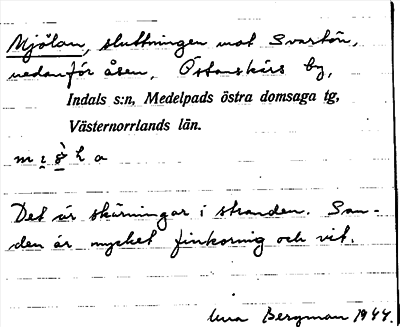 Mjölan, sluttningen mot Svartån,
nedanför åsen, Östanskärs by,
Indals s:n, Medelpads östra domsaga tg,
Västernorrlands län.
Det är skärningar i stranden. San-
den är mycket finkornig och vit.
Bergman 1944.